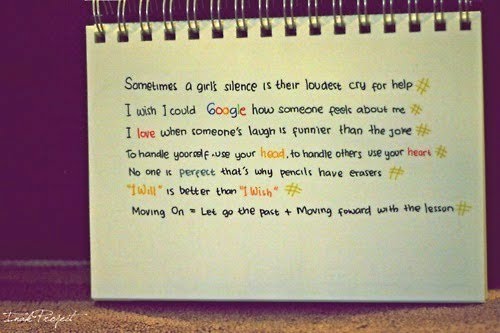 Sometimes a girl's silence is their loudest cry for help #
I wish I could Google how someone feels about me #
I love when someone's laugh is funnier than the joke #
To handle yourself, use your head, to handle others use your heart #
No one is perfect that's why pencils have erasers #
"I Will" is better than "I Wish" #
Moving On = Let go the past + Moving foward with the lesson #
InakProject